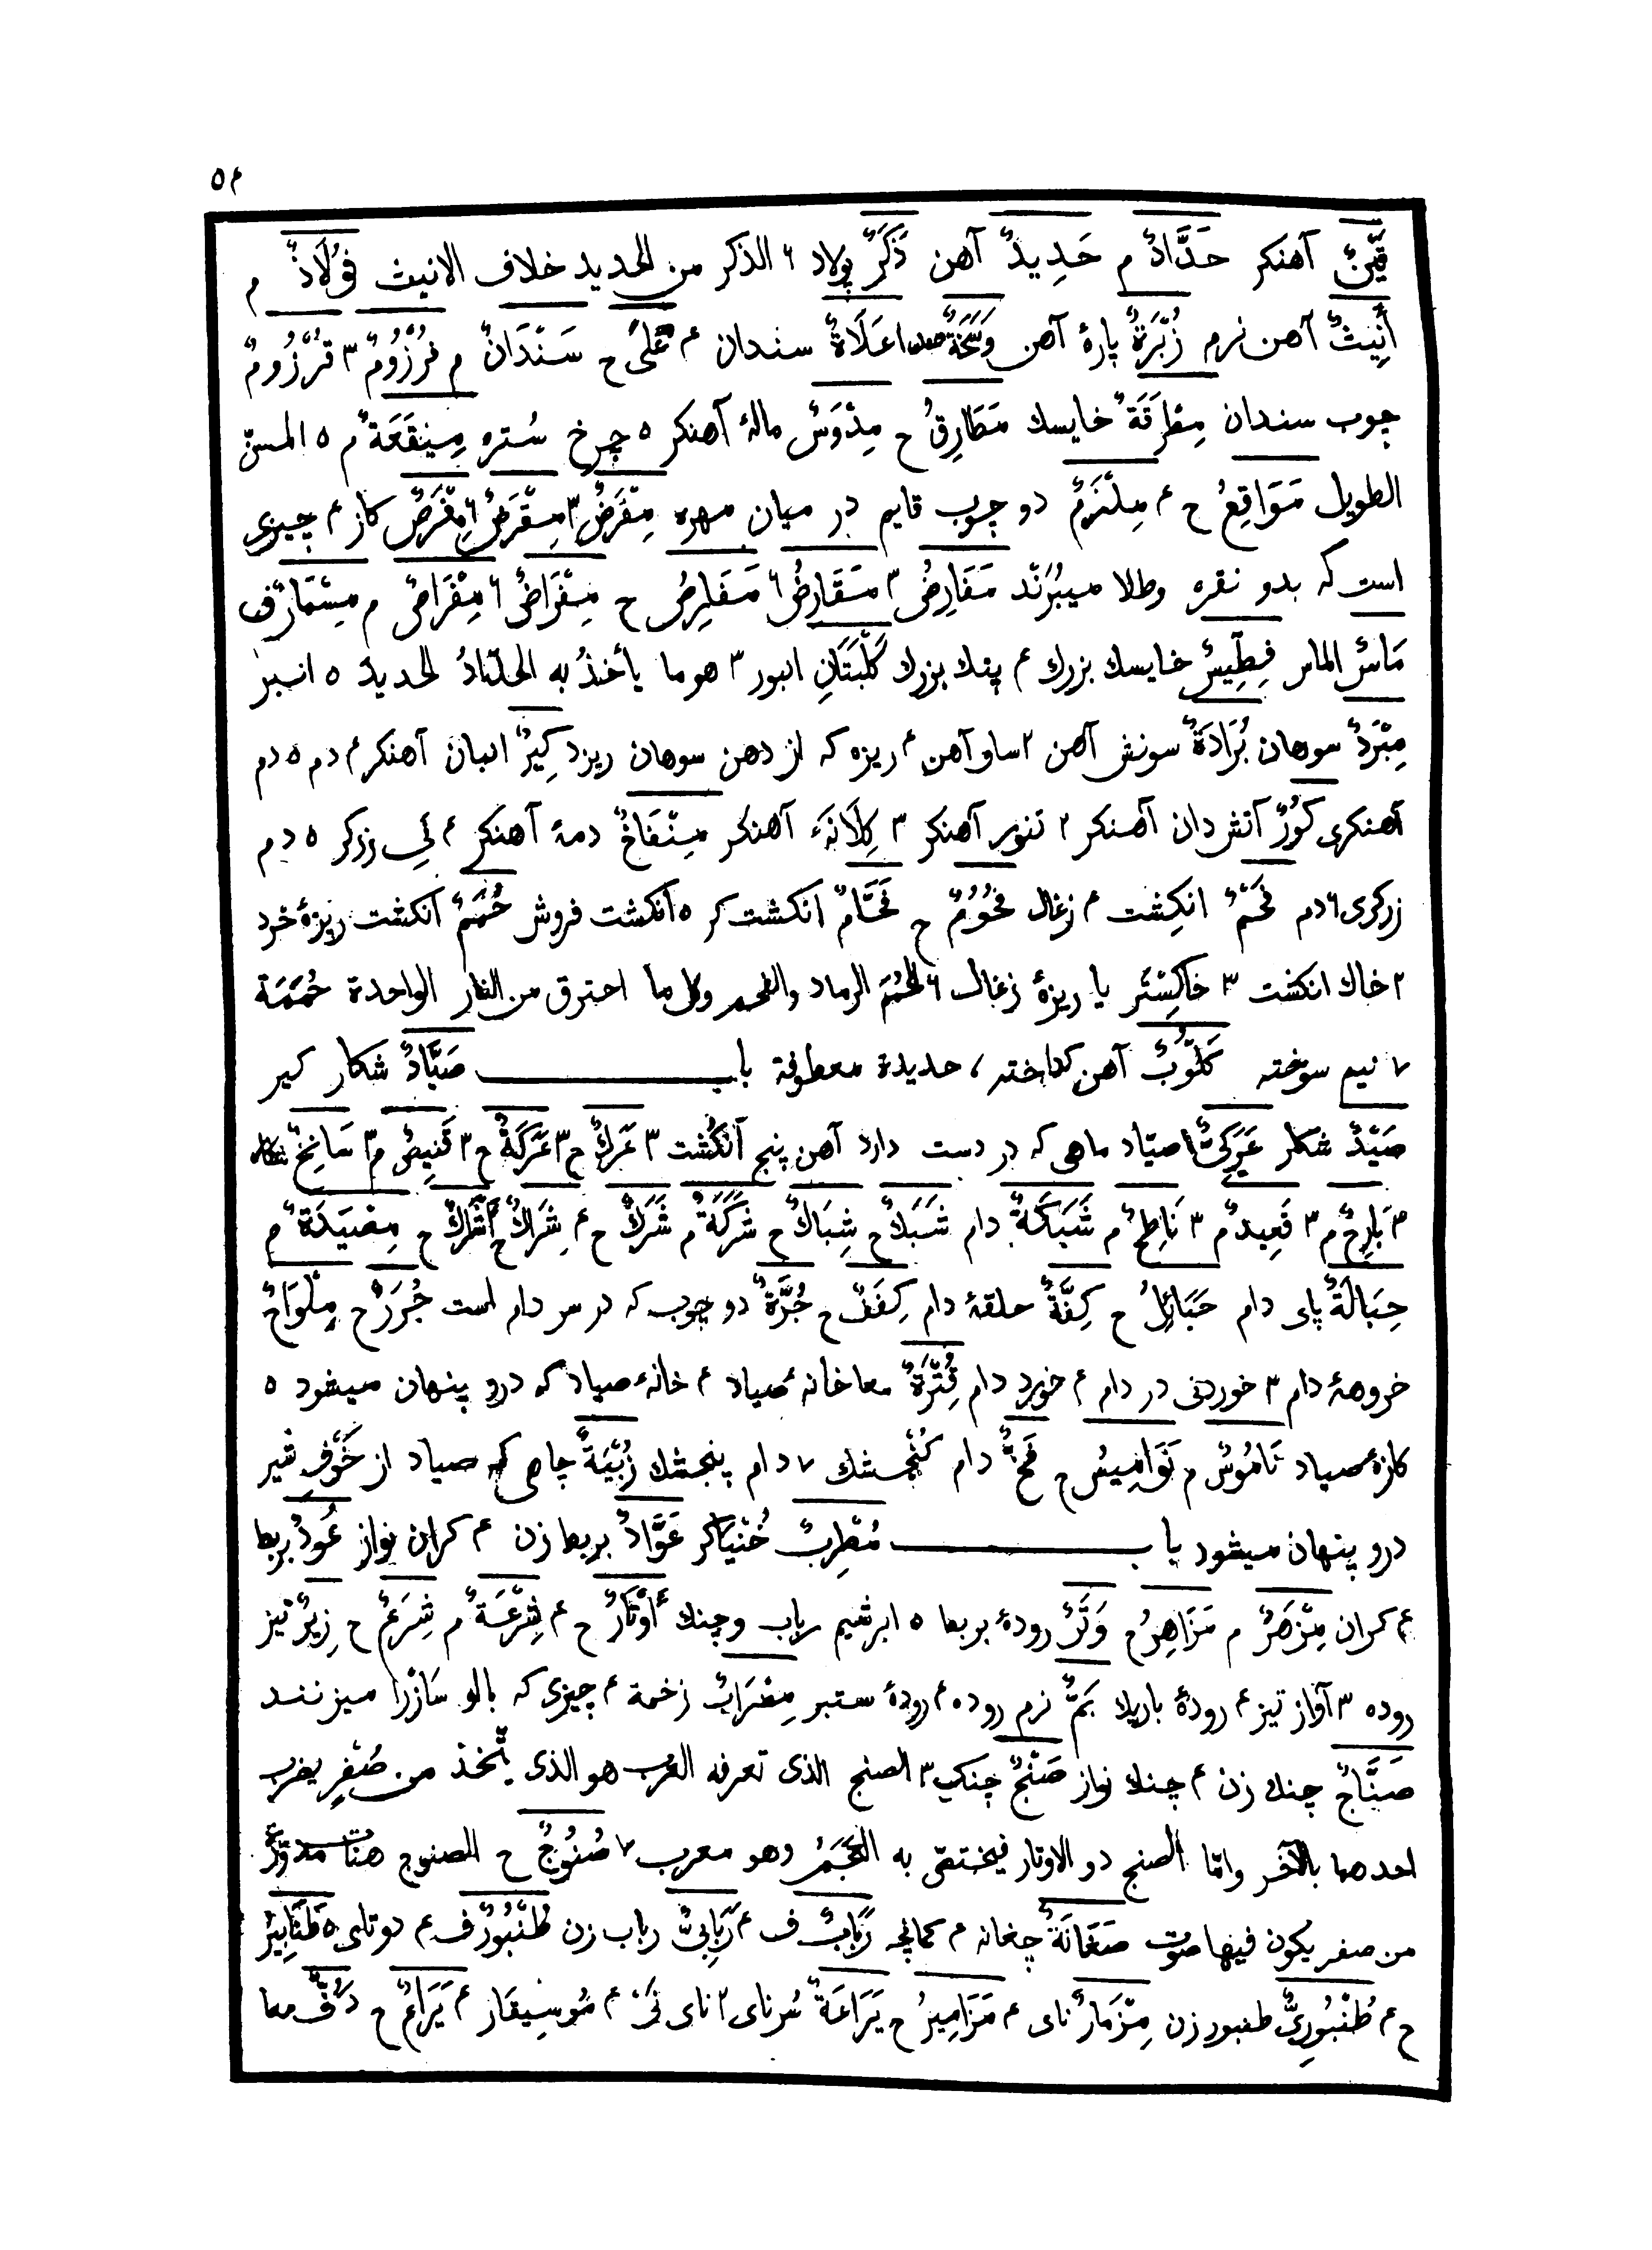 ۵۴
قَيْنٌ آهنكر حَدَّادٌ م حَدِيدٌ آهن ذَكَرٌ پولاد ۶ الذكر من الحديد خلاف الانيث فُولَاذٌ م
أَنِيثٌ آهن نرم زُبْرَةٌ پارهٔ آهن عَلَاةٌ سندان ۴ عَلًى ح سَنْدَانٌ م فُرْزُومٌ ۳ قُرْزُومٌ
چوب سندان مِطْرَقَةٌ خايسك مَطَارِقُ ح مِدْوَسٌ مالهٔ آهنكر ۵ چرخ سُتره مِيقَعَةٌ م ۵ المسنّ
الطويل مَوَاقِعُ ح ۴ مِلْزَمٌ دو چوب قايم در ميان مهره مِفْرَضٌ ۳ مِقْرَضٌ ۶ مِفْرَصٌ كاز ۴ چيزى
است كه بدو نقره وطلا ميبُرَنْد مَفَارِضُ ۳ مَقَارِضُ ۶ مَفَارِصُ ح مِقْرَاضٌ ۶ مِفْرَاصٌ م مِسْمَارٌ ف
مَاسٌ الماس فِطِّيسٌ خايسك بزرك ۴ پتك بزرك كَلْبَتَانِ انبور ۳ هو ما يأخذُ به الحدّادُ الحديدَ ۵ انبر
مِبْرَدٌ سوهان بُرَادَةٌ سونش آهن ۲ ساو آهن ۴ ريزه كه از دهن سوهان ريزد كِيرٌ انبان آهنكر ۴ دم ۵ دم
آهنكرى كُورٌ آتش دان آهنكر ۲ تنور آهنكر ۳ كِلَانَهٔ آهنكر مِنْفَاخٌ دمهٔ آهنكر ۴ نَىِ زركر ۵ دم
زركرى ۶ دم فَحْمٌ انكِشت ۴ زغال فُحُومٌ ح فَحَّامٌ انكشت كر ۵ انكشت فروش حُمَمٌ انكشت ريزهٔ خرد
۲ خاك انكشت ۳ خاكِسْتَر يا ريزهٔ زغال ۶ الحُمَمُ الرماد والفحم وكل ما احترق من النار الواحدة حُمَمَة
۷ نيم سوخته كَلُّوبٌ آهن كداخته ، حديدة معطوفة باب صَيَّادٌ شكار كير
صَيْدٌ شكار عَرَكِىٌّ صيّاد ماهى كه در دست دارد آهن پنج انكُشت ۳ عَرَكٌ ح ۳ عَرَكَةٌ ح ۳ قَنِيصٌ م ۳ سَانِحٌ
۳ بَارِحٌ م ۳ قَعِيدٌ م ۳ نَاطِحٌ م شَبَكَةٌ دام شَبَكٌ ح شِبَاكٌ ح شَرَكَةٌ م شَرَكٌ ح ۴ شِرَاكٌ ح أَشْرَاكٌ ح مِصْيَدَةٌ م
حِبَالَةٌ پاى دام حَبَائِلُ ح كِفَّةٌ حلقهٔ دام كِفَفٌ ح جُرَّةٌ دو چوب كه در سر دام است جُرَرٌ ح مِلْوَاحٌ
خروههٔ دام ۳ خوردنى در دام ۴ خورد دام قُتْرَةٌ مغاخانهٔ صياد ۴ خانهٔ صياد كه درو پنهان ميشود ۵
كازهٔ صياد نَامُوسٌ م نَوَامِيسُ ح فَخٌّ دام كُنْجِشك ۷ دام پنجشك زُبْيَةٌ چاهى كه صياد از خَوْفِ شير
درو پنهان ميشود باب مُطْرِبٌ خُنْيَاكر عَوَّادٌ بربط زن ۴ كران نواز عُودٌ بربط
۴ كران مِزْهَرٌ م مَزَاهِرُ ح وَتَرٌ رودهٔ بربط ۵ ابرشيم رباب وچنك أَوْتَارٌ ح ۴ شِرْعَةٌ م شِرَعٌ ح زِيرٌ تيز
روده ۳ آواز تيز ۴ رودهٔ باريك بَمٌّ نرم روده ۴ رودهٔ ستبر مِضْرَابٌ زخمة ۴ چيزى كه بالو سَازْرا ميزنند
صَنَّاجٌ چنك زن ۴ چنك نواز صَنْجٌ چنك ۳ الصنج الذى تعرفه العرب هو الذى يتّخذ من صُفْرٍ يضرب
احدهما بالآخر وامّا الصنج ذو الاوتار فيختصّ به العَجَمُ وهو معرب ۷ صُنُوجٌ ح الصنوج هنات مدوَّرٌ
من صفر يكون فيها صوت صَغَانَةٌ چغانه ۴ كمانچه رَبَابٌ ف ۴ رَبَابِىٌّ رباب زن طُنْبُورٌ ف ۴ دوتاى ۵ طَنَابِيرُ
ح ۴ طُنْبُورِىٌّ طنبور زن مِزْمَارٌ ناى ۴ مَزَامِيرُ ح يَرَاعَةٌ سُرناى ۲ ناى نَىْ ۴ مُوسِيقَار ۴ يَرَاعٌ ح دَفٌّ معا